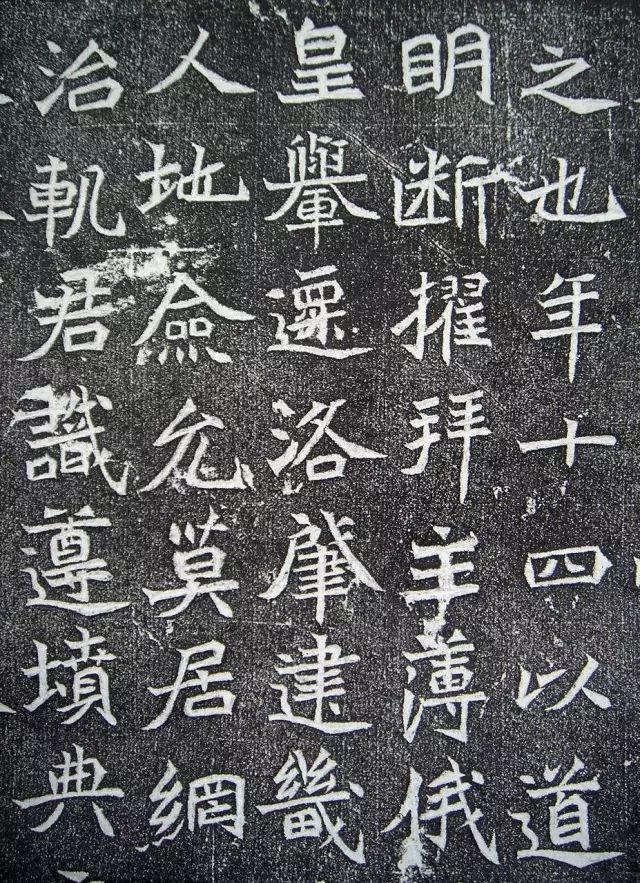 之也年十四以道
明断擢拜主薄俄
皇轝遷洛肇建畿
人地僉允莫居網
治軌君識遵墳典